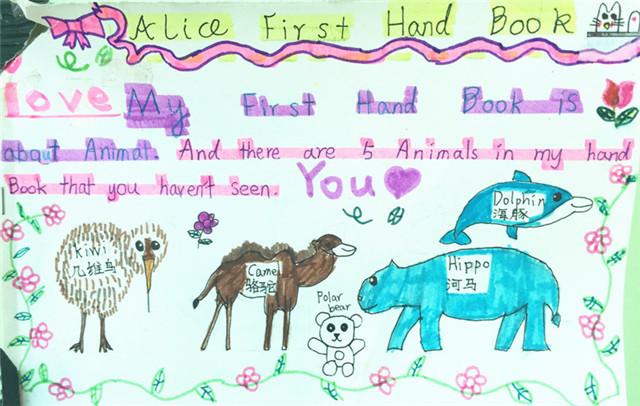 Alice First Hand Book
love My First Hand Book is
about Animal. And there are 5 Animals in my hand
Book that you haven't seen. You
Dolphin
海豚
Kiwi
几维鸟
Camel
骆驼
Hippo
河马
Polar
bear